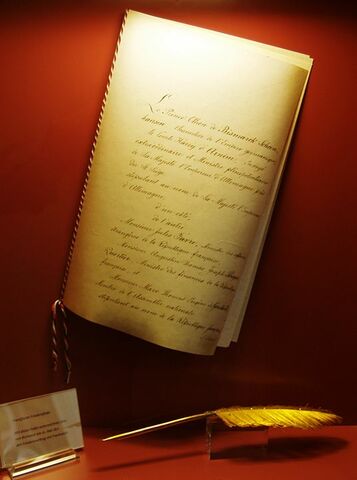 Le Prince Othon de Bismarck-Schoen-
hausen, Chancelier de l'Empire germanique
le Comte Harry d'Arnim, Envoyé
extraordinaire et Ministre plénipotentiaire
de Sa Majesté l'Empereur d'Allemagne près
du St. Siège
stipulant au nom de Sa Majesté l'Empereur
d'Allemagne,
d'un côté,
de l'autre
Monsieur Jules Favre, Ministre des affaires
étrangères de la République française,
Monsieur Augustin Thomas Joseph Pouyer-
Quertier, Ministre des finances de la République
française, et
Monsieur Marc Thomas Eugène de Goulard,
Membre de l'Assemblée nationale
stipulant au nom de la République française